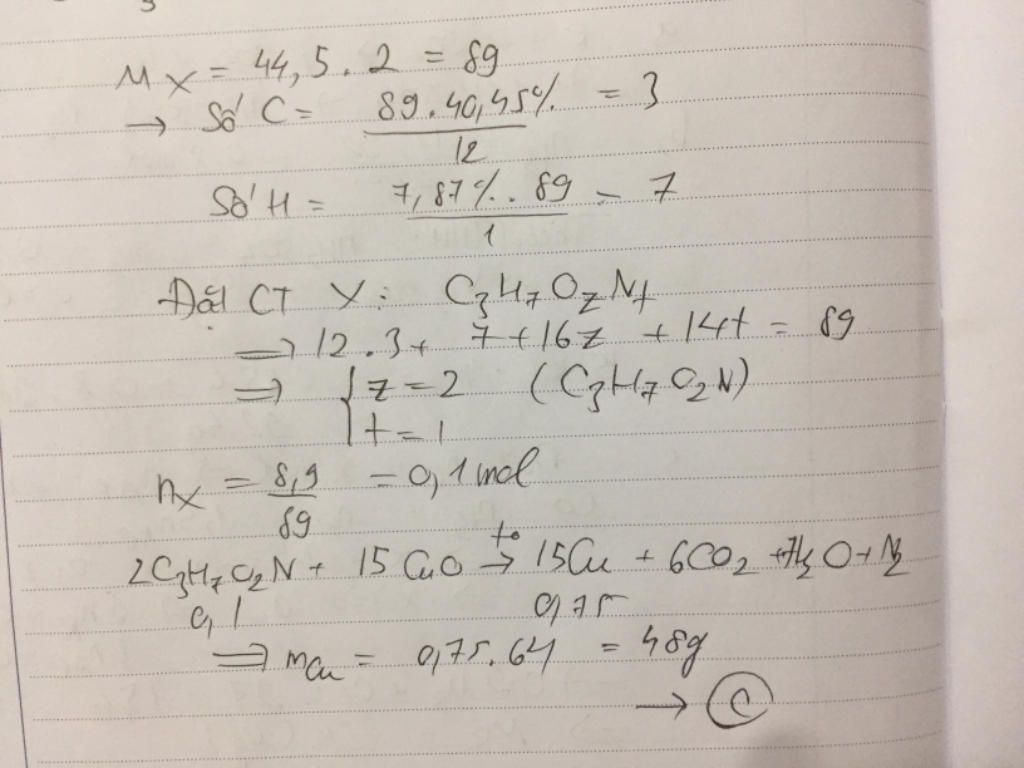 M X = 44,5 . 2 = 89
→ Số C = 89.40,45% / 12 = 3
Số H = 7,87% . 89 / 1 = 7
Đặt CT X : C3H7OzNt
=> 12.3 + 7 + 16z + 14t = 89
=> { z = 2 (C3H7O2N)
t = 1
nX = 8,9 / 89 = 0,1 mol
2C3H7O2N + 15 CuO →to 15Cu + 6CO2 + 7H2O + N2
0,1 0,75
=> mCu = 0,75.64 = 48g
→ C